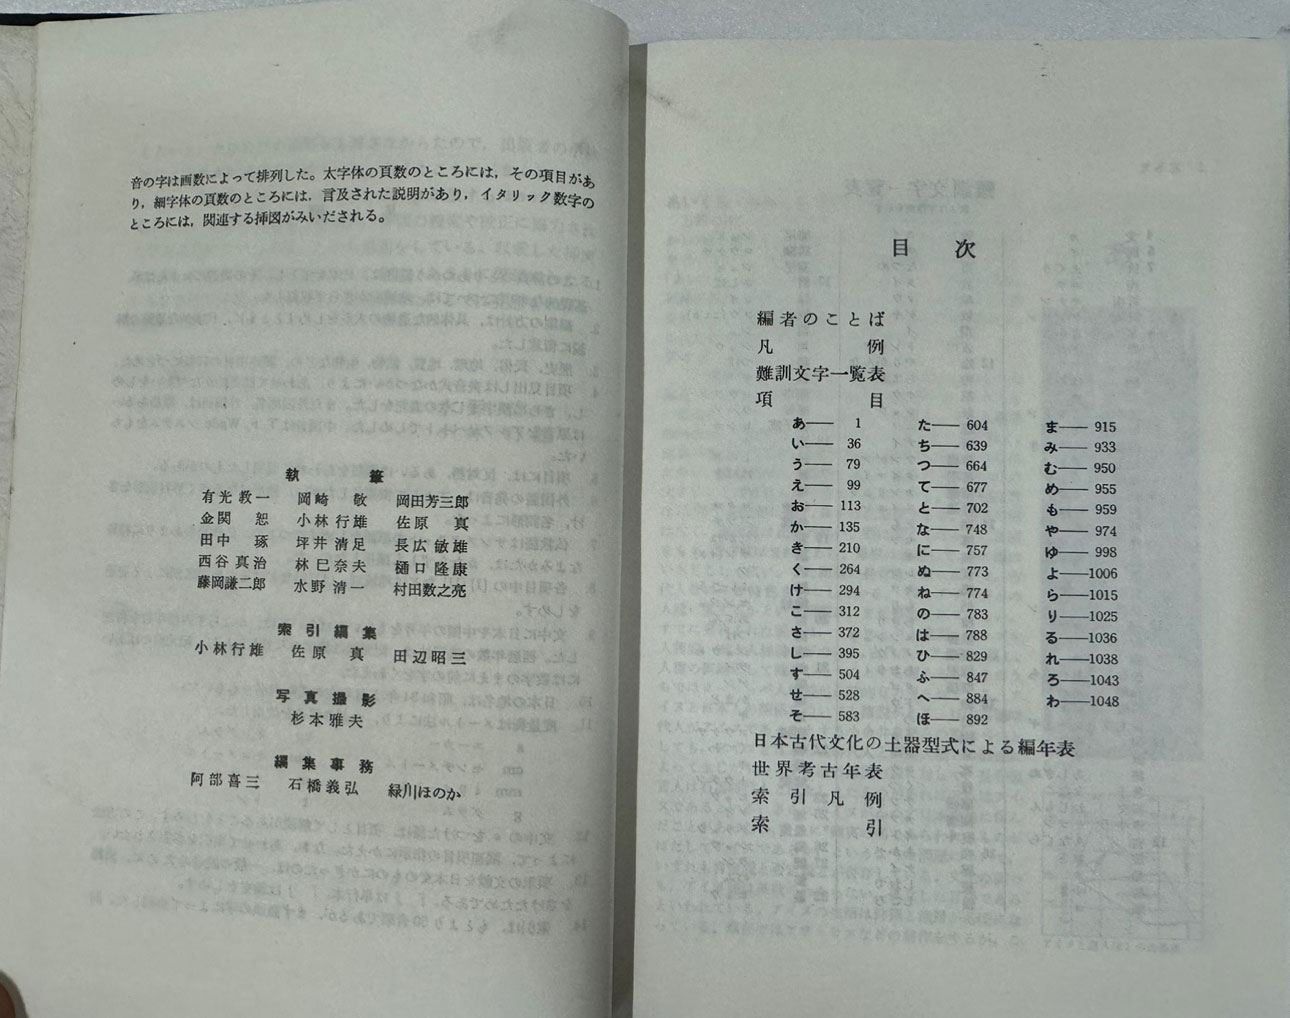 音の字は画数によって排列した。太字体の頁数のところには，その項目があ
り，細字体の頁数のところには，言及された説明があり，イタリック数字の
ところには，関連する挿図がみいだされる。
執筆
有光教一 岡崎敬 岡田芳三郎
金関恕 小林行雄 佐原真
田中琢 坪井清足 長広敏雄
西谷真治 林巳奈夫 樋口隆康
藤岡謙二郎 水野清一 村田数之亮
索引編集
小林行雄 佐原真 田辺昭三
写真撮影
杉本雅夫
編集事務
阿部喜三 石橋義弘 緑川ほのか
目次
編者のことば
凡例
難訓文字一覧表
項目
あ―― 1
い―― 36
う―― 79
え―― 99
お―― 113
か―― 135
き―― 210
く―― 264
け―― 294
こ―― 312
さ―― 372
し―― 395
す―― 504
せ―― 528
そ―― 583
た―― 604
ち―― 639
つ―― 664
て―― 677
と―― 702
な―― 748
に―― 757
ぬ―― 773
ね―― 774
の―― 783
は―― 788
ひ―― 829
ふ―― 847
へ―― 884
ほ―― 892
ま―― 915
み―― 933
む―― 950
め―― 955
も―― 959
や―― 974
ゆ―― 998
よ――1006
ら――1015
り――1025
る――1036
れ――1038
ろ――1043
わ――1048
日本古代文化の土器型式による編年表
世界考古年表
索引凡例
索引